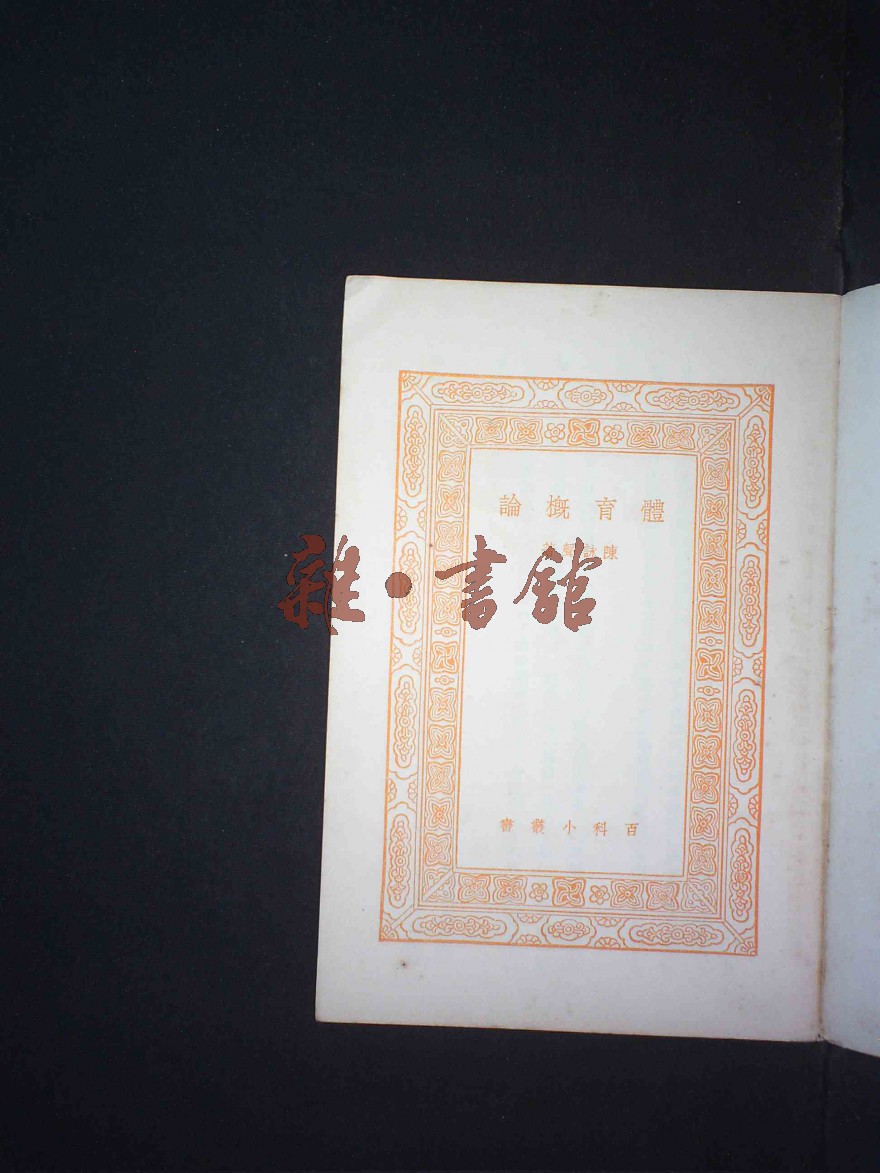 體育概論
陳詠聲著
百科小叢書
雜·書館